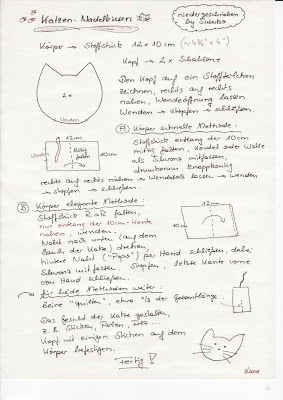 Katzen-Nadelkissen
niedergeschrieben
by
Körper → Stoffstück 12 x 10 cm (~ 4¾" x 4")
Kopf → 2 x Schablone
2 x
Wenden
Den Kopf auf ein Stoffstückchen
zeichnen, rechts auf rechts
nähen, Wendeöffnung lassen.
Wenden → stopfen → schließen.
A) Körper schnelle Methode:
12cm
10cm
wenden
Mittig
falten
Stoffstück entlang der 10cm
mittig falten, Kordel oder Wolle
als Schwanz mitfassen,
knappkantig
rechts auf rechts nähen → Wendeloch lassen → wenden
→ stopfen → schließen
B) Körper elegante Methode:
Stoffstück R a R falten,
nur entlang der 10cm-Kante
nähen, wenden.
Naht nach unten (auf dem
Bauch der Katze) drehen,
hintere Naht ("Popo") per Hand schließen, dabei
Schwanz mitfassen. Stopfen, letzte Kante vorne
von Hand schließen.
12cm
10cm
für beide Methoden weiter:
Beine "quilten", etwa ⅓ der Gesamtlänge.
Das Gesicht der Katze gestalten,
z.B. Sticken, Perlen, etc...
Kopf mit einigen Stichen auf dem
Körper befestigen.
Fertig!